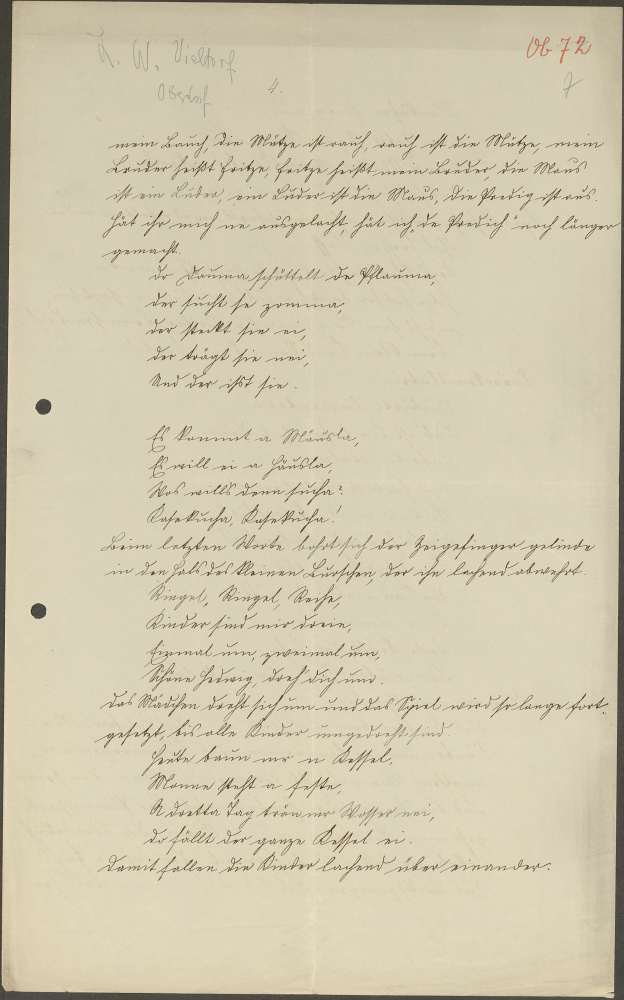 K. W. Vieltorf
Ob 72
Oberdorf
4.
7
mein Bauch, die Mütze ist rauh, rauh ist die Mütze, mein
Bruder heißt Fritze, Fritze heißt mein Bruder, die Maus
ist ein Luder, ein Luder ist die Maus, die Predig ist aus.
Hät ihr mich ne ausgelacht, hät ich de Predich noch länger
gemacht.
Dr Dauma schüttelt de Pflauma,
der sucht se zomma,
der steckt sie ei,
der trägt sie nei,
Und der ißt sie.
Es kommt a Mäusla,
Es will ei a Häusla,
Wos wills denn sucha?
Kasekucha, Kasekucha!
Beim letzten Worte bohrt sich der Zeigefinger gelinde
in den Hals des kleinen Burschen, der ihn lachend abwehrt.
Ringel, Ringel, Reihe,
Kinder sind mir dreie,
Einmal um, zweimal um,
Schöne Hedwig, dreh dich um.
Das Mädchen dreht sich um und das Spiel wird so lange fort-
gesetzt, bis alle Kinder umgedreht sind.
Heute baun mr n Kessel,
Monne steht a feste,
A dretta Tag trön mr Wasser nei,
do fällt der ganze Kessel ei.
Damit fallen die Kinder lachend über einander.